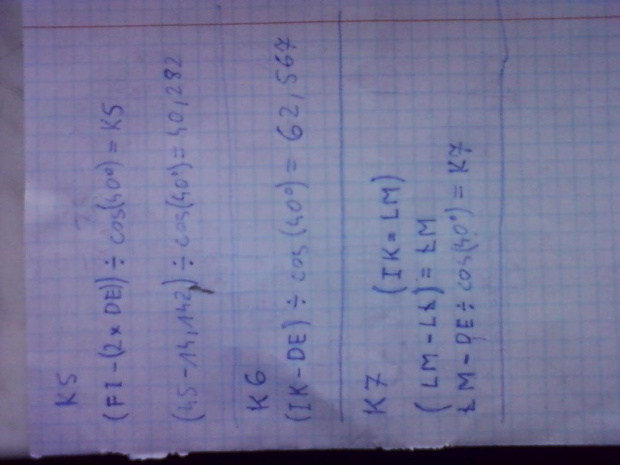 K5
(FI-(2×DE))÷cos(40°)=K5
(45-14,142)÷cos(40°)=40,282
K6
(IK-DE)÷cos(40°)=62,567
K7
(IK=LM)
(LM-LŁ)=ŁM
ŁM-DE÷cos(40°)=K7